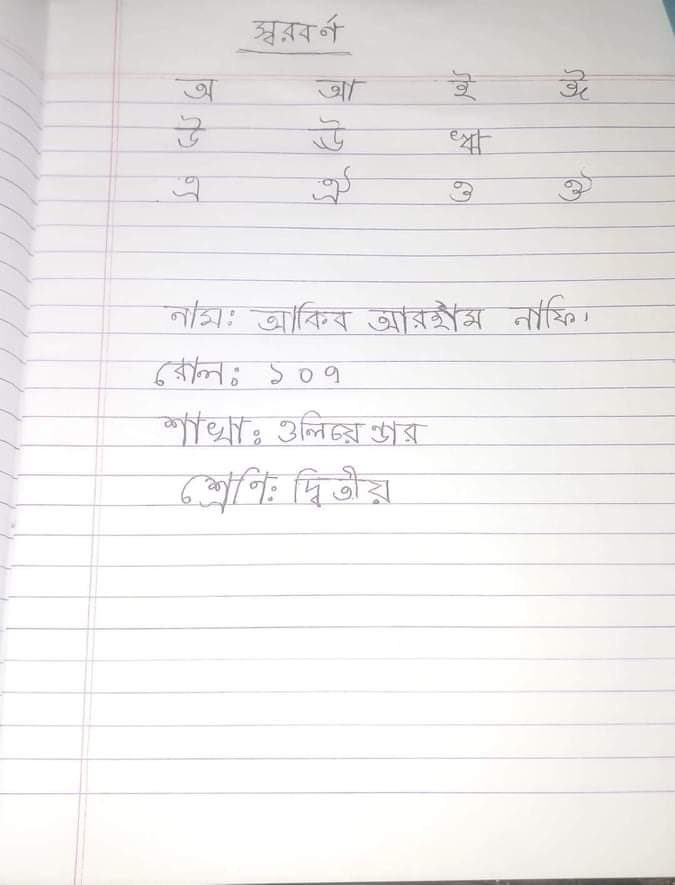 স্বরবর্ণ
অ আ ই ঈ
উ ঊ ঋ
এ ঐ ও ঔ
নাম: আকিব আরহাম নাফি।
রোল: ১০৭
শাখা: ওলিয়েন্ডার
শ্রেণি: দ্বিতীয়